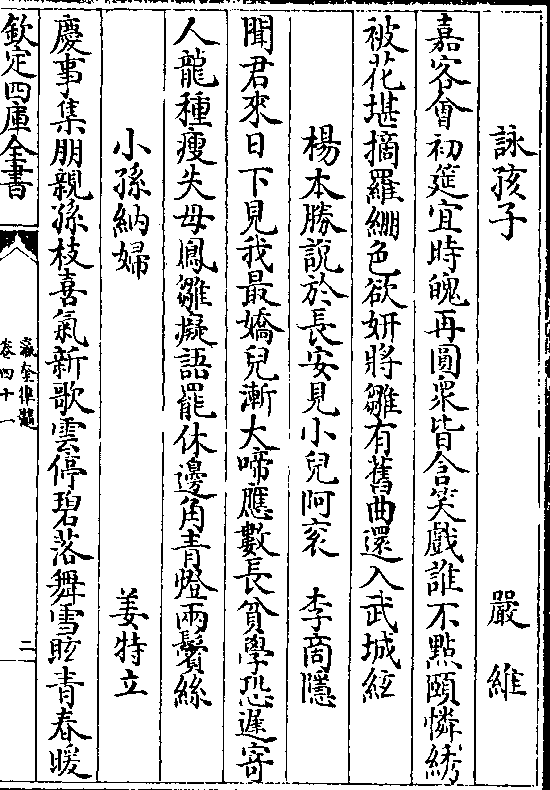 詠孩子　嚴維
嘉客會初筵宜時魄再圓衆皆含笑戲誰不點頤憐綉
被花堪摘羅綳色欲妍將雛有舊曲還入武城絃
楊本勝說於長安見小兒阿衮　李商隱
聞君來日下見我最嬌兒漸大啼應數長貧學恐遲寄
人龍種瘦失母鳳雛癡語罷休邊角青燈兩鬢絲
小孫納婦　姜特立
慶事集朋親孫枝喜氣新歌雲停碧落舞雪眩青春暖
欽定四庫全書
瀛奎律髓
卷四十一
二